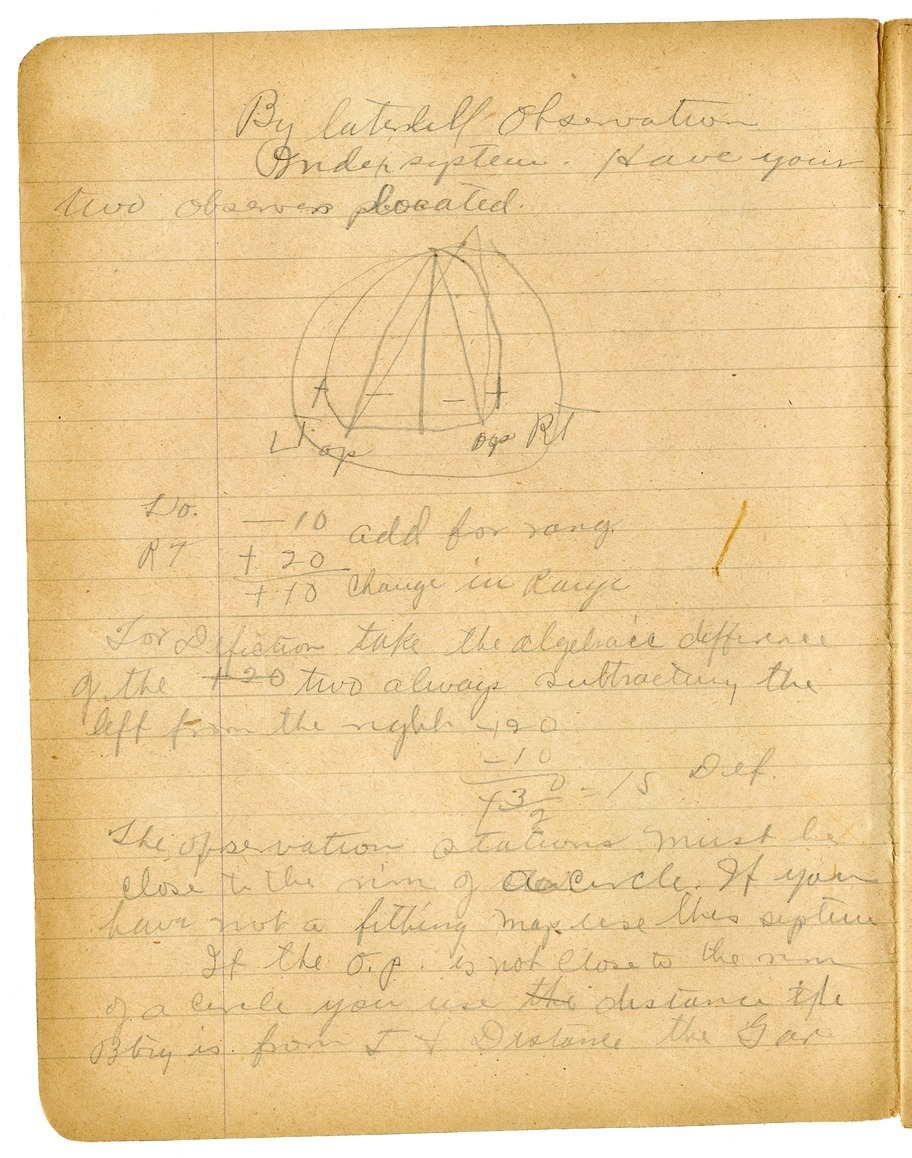 By Laterall Observation
Under system. Have your
two observers located.
+ − − +
LT op op RT
Lo. − 10 add for rang.
RT + 20
+ 10 Change in Range
For Defiction take the algebraic difference
of the +20 two always subtracting the
left from the right +20
−10
+30/2 = 15 Def.
The opservation stations must be
close to the rim of a circle. If you
have not a fitting map use this system
If the O.P. is not close to the rim
of a circle you use the distance the
Btry is from T + Distance the